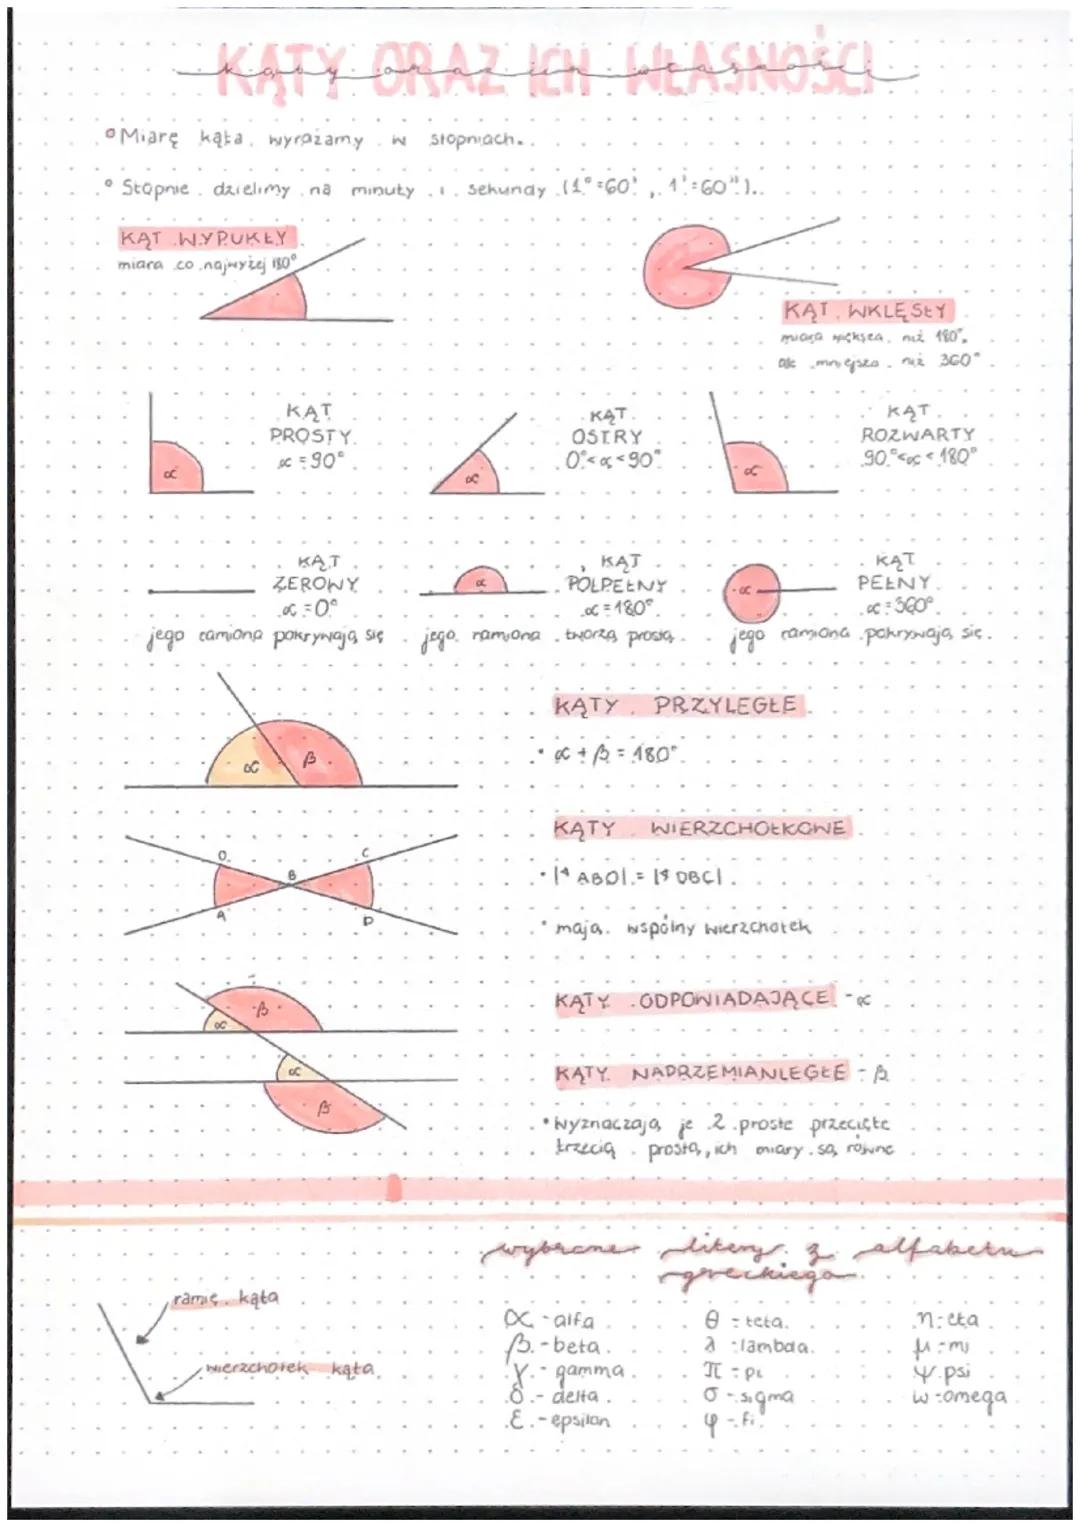 KĄTY ORAZ ICH WŁASNOŚCI
kąty oraz ich własności
Miarę kąta wyrażamy w stopniach.
Stopnie dzielimy na minuty i sekundy (1°=60', 1'=60'').
KĄT WYPUKŁY
miara co najwyżej 180°
KĄT WKLĘSŁY
miara większa niż 180°,
ale mniejsza niż 360°
KĄT
PROSTY
α = 90°
α
KĄT
OSTRY
0°<α<90°
α
KĄT
ROZWARTY
90°<α<180°
α
KĄT
ZEROWY
α = 0°
jego ramiona pokrywają się
KĄT
PÓŁPEŁNY
α = 180°
α
jego ramiona tworzą prostą
KĄT
PEŁNY
α = 360°
α
jego ramiona pokrywają się.
α β
KĄTY PRZYLEGŁE
• α + β = 180°
KĄTY WIERZCHOŁKOWE
O C
B
A D
• |∢ ABO| = |∢ DBC|
• mają wspólny wierzchołek
β
α
α
β
KĄTY ODPOWIADAJĄCE - α
KĄTY NAPRZEMIANLEGŁE - β
• Wyznaczają je 2 proste przecięte
trzecią prostą, ich miary są równe
ramię kąta
wierzchołek kąta
wybrane litery z alfabetu
greckiego
α - alfa
β - beta
γ - gamma
δ - delta
ε - epsilon
θ - teta
λ - lambda
π - pi
σ - sigma
φ - fi
η - eta
μ - mi
ψ psi
ω - omega